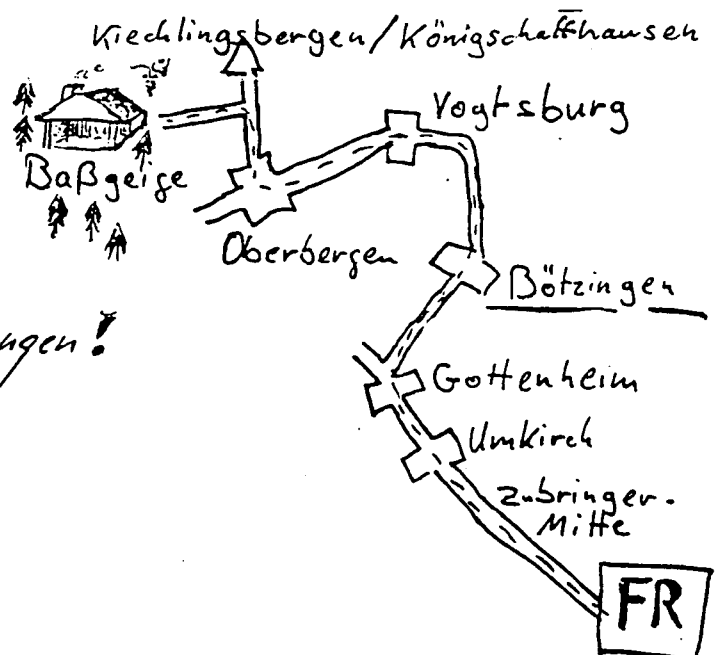 Kiechlingsbergen/Königschaffhausen
Vogtsburg
Baßgeige
Oberbergen
Bötzingen
ngen!
Gottenheim
Umkirch
Zubringer-
Mitte
FR